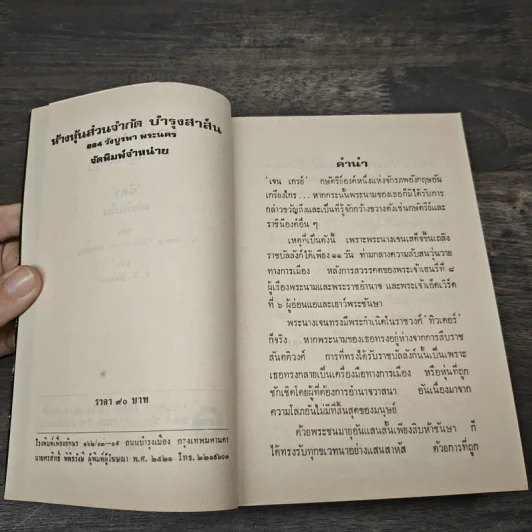 ห้างหุ้นส่วนจำกัด บำรุงสาส์น
๑๑๔ วังบูรพา พระนคร
จัดพิมพ์จำหน่าย
ราคา ๙๐ บาท
โรงพิมพ์เฟื่องอักษร
ถนนบำรุงเมือง กรุงเทพมหานคร
ผู้พิมพ์ผู้โฆษณา พ.ศ. ๒๕๒๑ โทร. ๒๒๑๙๖๐๓
คำนำ
'เจน เกรย์' กษัตรีย์องค์หนึ่งแห่งจักรภพอังกฤษอัน
เกรียงไกร ... หากกระนั้นพระนามของเธอก็มิได้รับการ
กล่าวขวัญถึงและเป็นที่รู้จักกว้างขวางดังเช่นกษัตรีย์และ
ราชินีองค์อื่น ๆ
เหตุที่เป็นดังนี้ เพราะพระนางเจนเสด็จขึ้นเถลิง
ราชบัลลังก์ได้เพียง ๑๑ วัน ท่ามกลางความสับสนวุ่นวาย
ทางการเมือง หลังการสวรรคตของพระเจ้าเฮนรี่ที่ ๘
ผู้เรืองพระนามและพระราชอำนาจ และพระเจ้าเอ็ดเวิร์ด
ที่ ๖ ผู้อ่อนแอและเยาว์พระชันษา
พระนางเจนทรงมีพระกำเนิดในราชวงศ์ 'ทิวเดอร์'
ก็จริง หากพระนามของเธอทรงอยู่ห่างจากการสืบราช
สันตติวงศ์ การที่ทรงได้รับราชบัลลังก์นั้นเป็นเพราะ
เธอทรงกลายเป็นเครื่องมือทางการเมือง หรือหุ่นที่ถูก
ชักเชิดโดยผู้ที่ต้องการอำนาจวาสนา อันเนื่องมาจาก
ความโลภอันไม่มีที่สิ้นสุดของมนุษย์
ด้วยพระชนมายุอันแสนสั้นเพียงสิบห้าชันษา ก็
ได้ทรงรับทุกขเวทนาอย่างแสนสาหัส ด้วยการที่ถูก